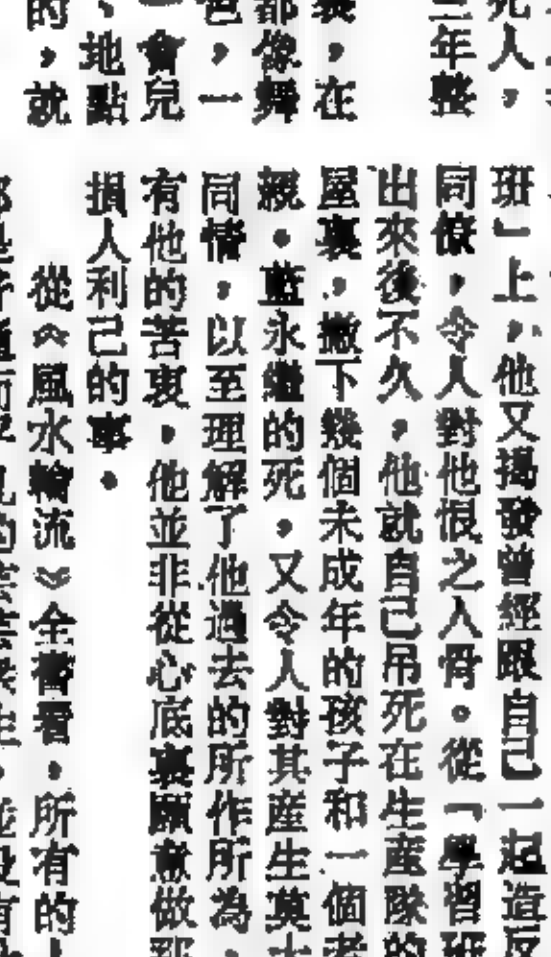 死人，
三年整
裏，在
都像舞
色，一
一會兒
、地點
的，就
班」上，他又揭發曾經跟自己一起造反
同僚，令人對他恨之入骨。從「學習班
出來後不久，他就自己吊死在生産隊的
屋裏，撇下幾個未成年的孩子和一個老
親。藍永繼的死，又令人對其産生莫大
同情，以至理解了他過去的所作所為，
有他的苦衷，他並非從心底裏願意做那
損人利己的事。
從《風水輪流》全書看，所有的